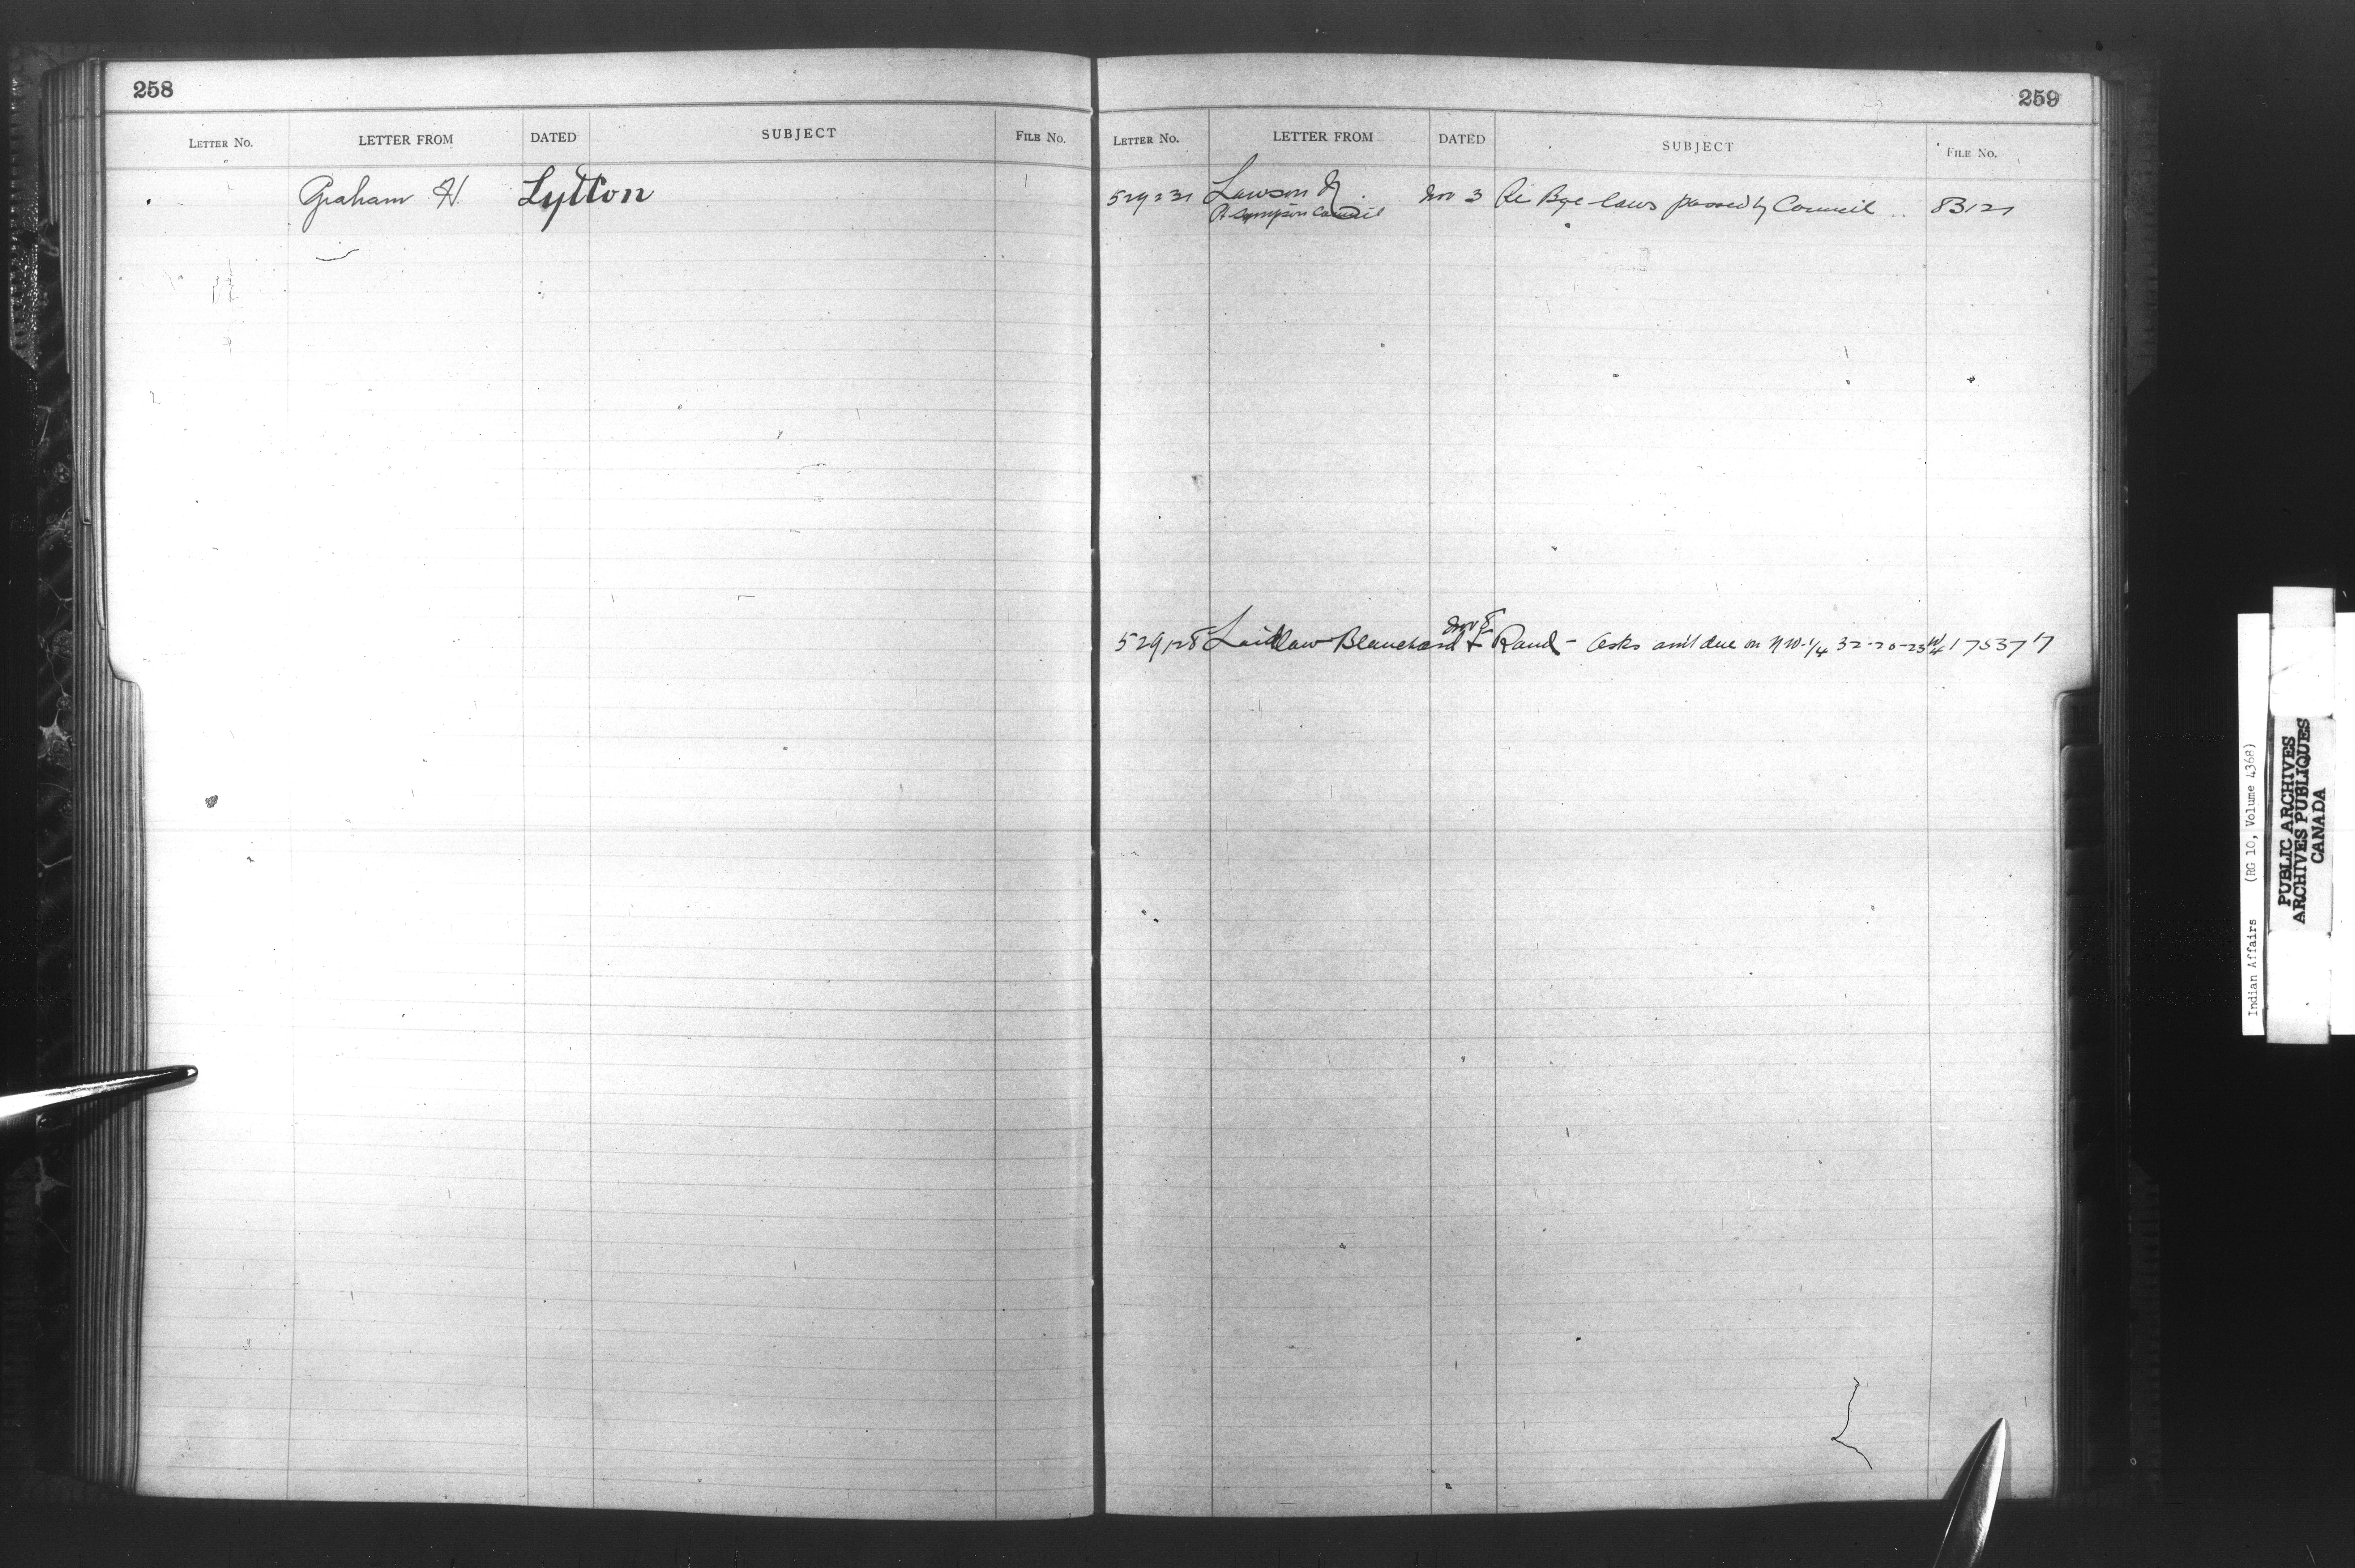 258
LETTER No. LETTER FROM DATED SUBJECT FILE No.
Graham H. Lytton
259
LETTER No. LETTER FROM DATED SUBJECT FILE No.
529231 Lawson Nov 3 Re Bye-laws passed by Council 83121
Pt Simpson Council
Nov 8
529128 Laidlaw Blanchard & Rand - Asks am't due on NW. 1/4 32-20-23 W4 175377
Indian Affairs (RG 10, Volume 4368)
PUBLIC ARCHIVES
ARCHIVES PUBLIQUES
CANADA